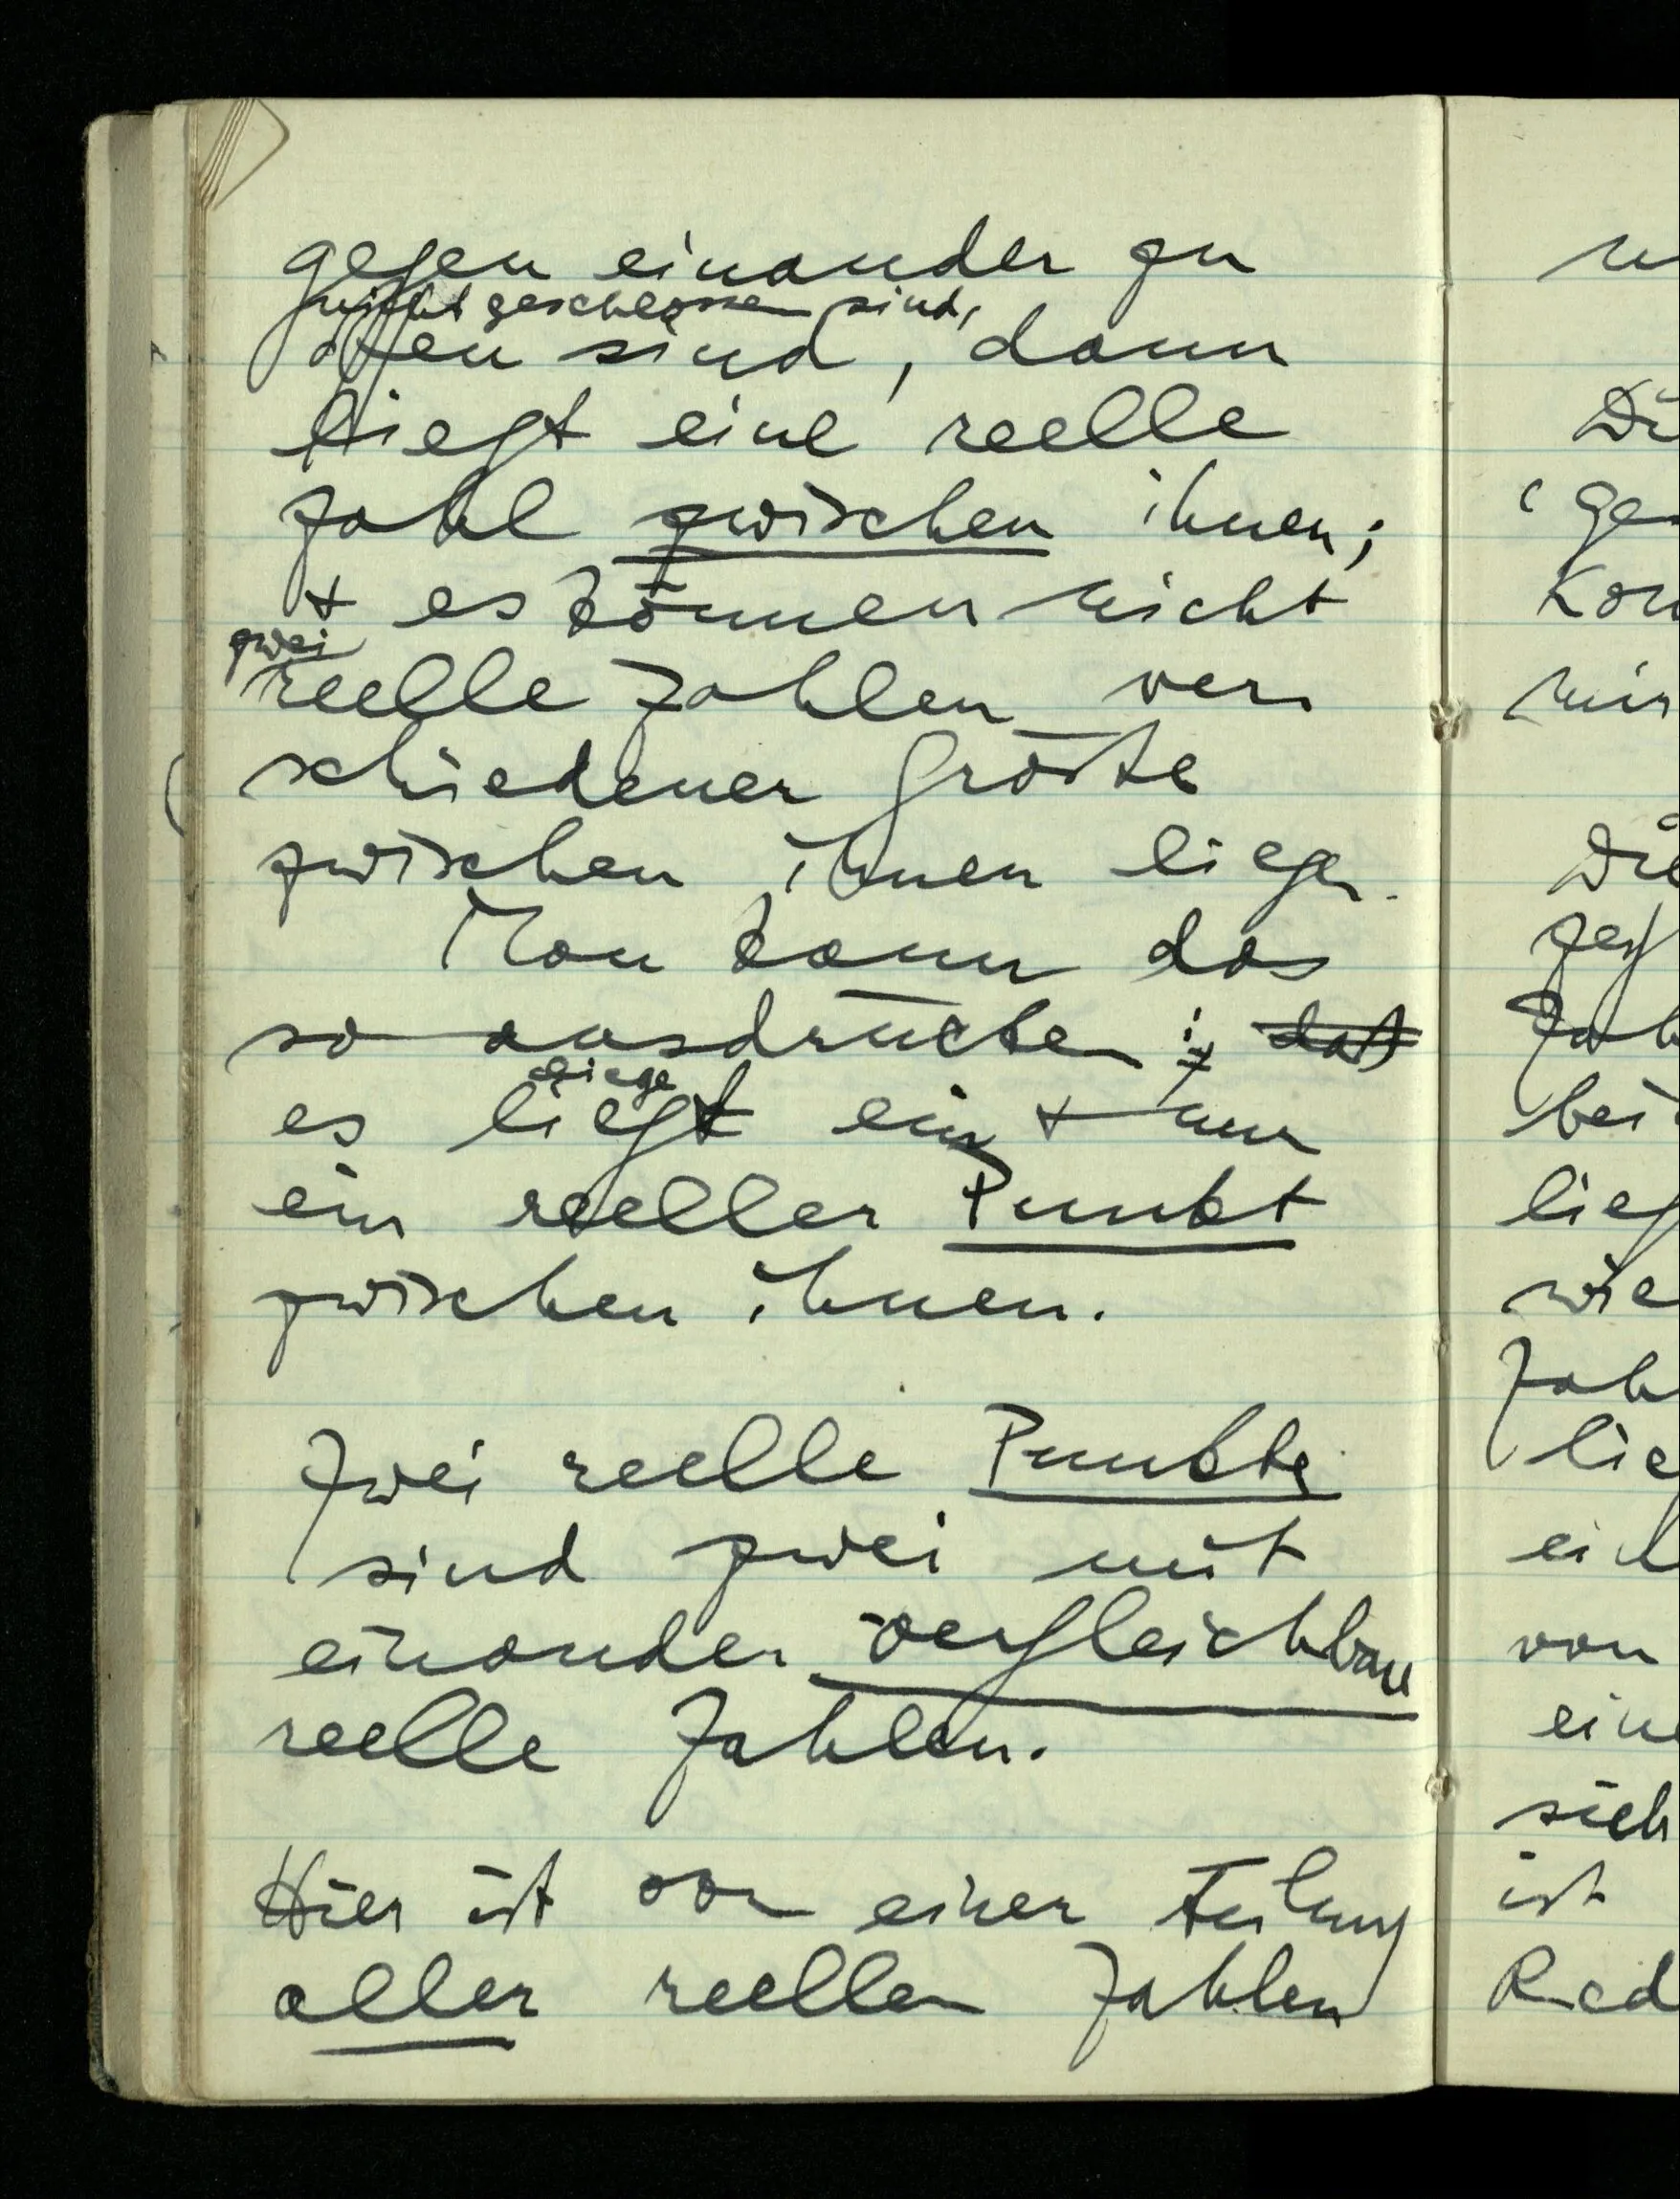 gegen einander zu
nicht geschlossen sind,
offen sind, dann
liegt eine reelle
Zahl zwischen ihnen;
+ es können nicht
zwei
reelle Zahlen ver
schiedener Größe
zwischen ihnen liegen.
Man kann das
so ausdrücken: daß
liege
es liegt ein + nur
ein reeller Punkt
zwischen ihnen.
Zwei reelle Punkte
sind zwei mit
einander vergleichbare
reelle Zahlen.
Hier ist von einer Teilung
aller reellen Zahlen